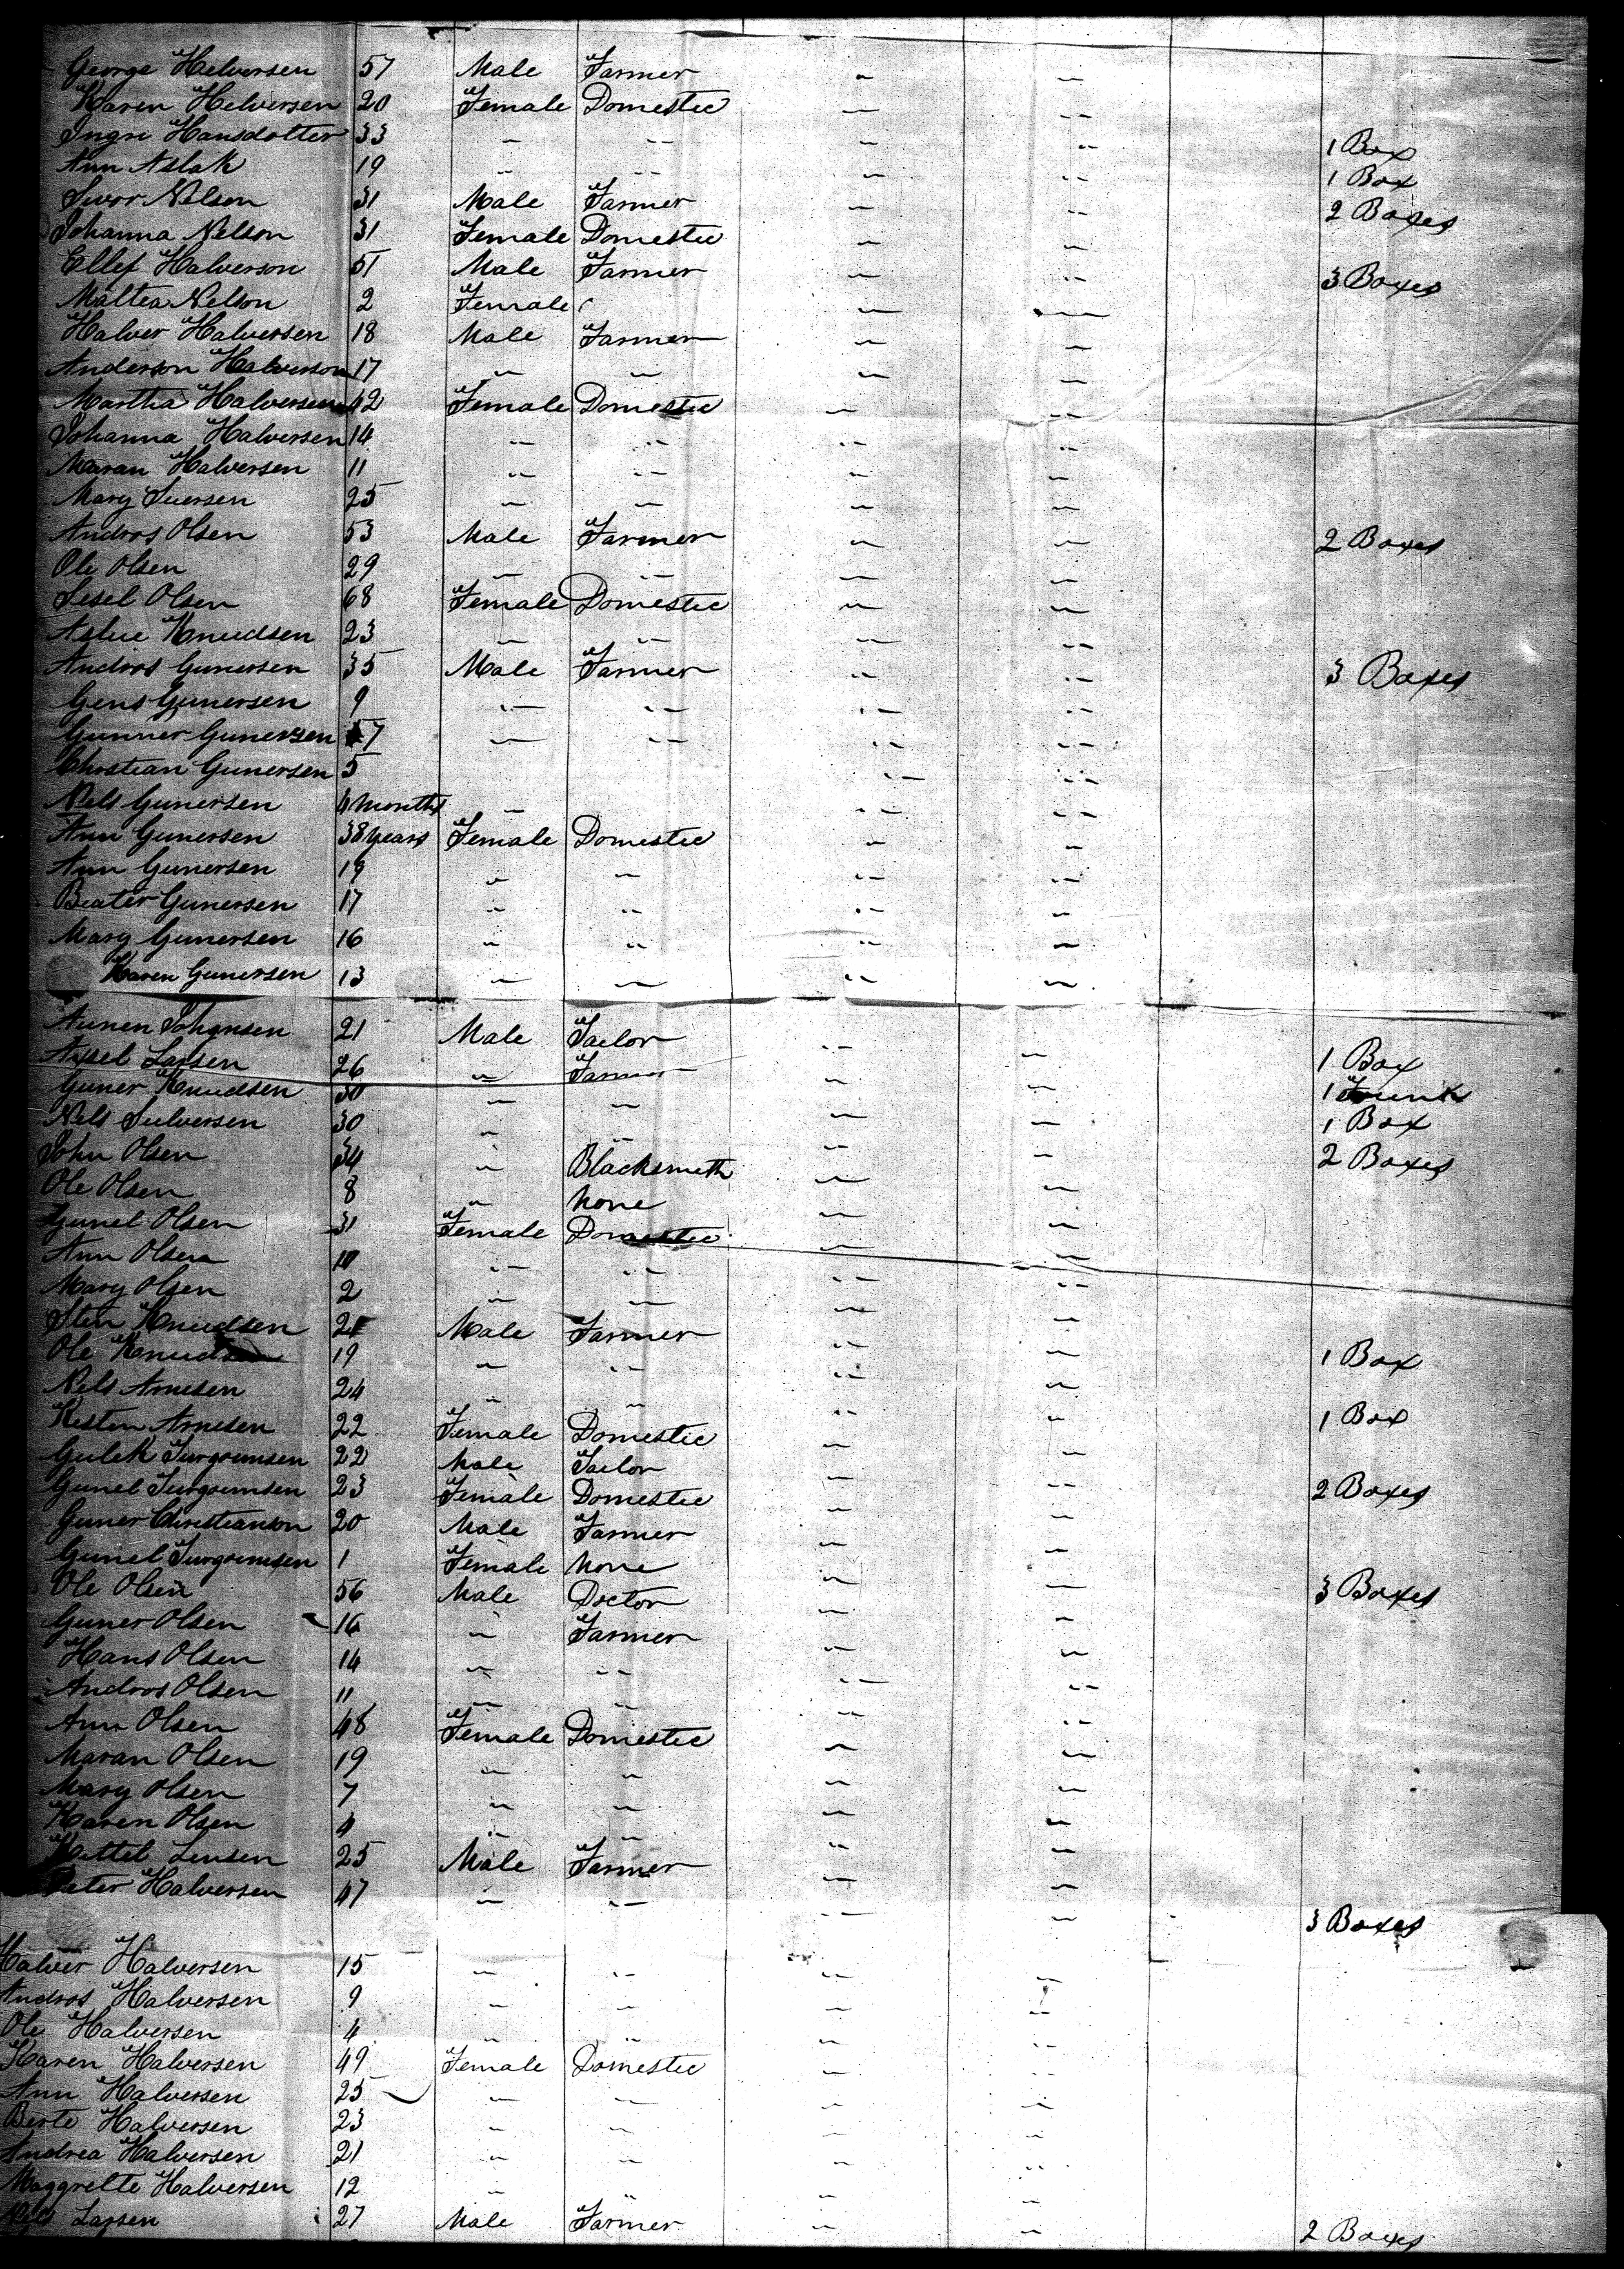 George Helversen 57 Male Farmer " "
Karen Helversen 20 Female Domestic " "
Ingri Hansdotter 33 " " " " 1 Box
Ann Aslak 19 " " " " 1 Box
Suvor Nelson 31 Male Farmer " " 2 Boxes
Johanna Nelson 31 Female Domestic " "
Ellef Halverson 51 Male Farmer " " 3 Boxes
Maltea Nelson 2 Female " "
Halver Halversen 18 Male Farmer " "
Anderson Halverson 17 " " " "
Martha Halversen 42 Female Domestic " "
Johanna Halversen 14 " " " "
Maran Halversen 11 " " " "
Mary Iversen 25 " " " "
Andros Olsen 53 Male Farmer " " 2 Boxes
Ole Olsen 29 " " " "
Sesel Olsen 68 Female Domestic " "
Aslue Knudsen 23 " " " "
Andros Gunersen 35 Male Farmer " " 3 Boxes
Gens Gunersen 9 " " " "
Gunner Gunersen 7 " " " "
Christian Gunersen 5 " "
Nels Gunersen 4 months " " "
Ann Gunersen 38 years Female Domestic " "
Ann Gunersen 19 " " " "
Beater Gunersen 17 " " " "
Mary Gunersen 16 " " " "
Karen Gunersen 13 " " " "
Aunen Johansen 21 Male Tailor " " 1 Box
Axsel Larsen 26 " Farmer " " 1 Trunk
Guner Knudsen 30 " " " " 1 Box
Nels Sulversen 30 " " " " 2 Boxes
John Olsen 34 " Blacksmith " "
Ole Olsen 8 " None " "
Gunel Olsen 31 Female Domestic " "
Ann Olsen 10 " " " "
Mary Olsen 2 " " " "
Sten Knudsen 21 Male Farmer " " 1 Box
Ole Knudsen 19 " " " "
Nels Arnesen 24 " " " " 1 Box
Kesten Arnesen 22 Female Domestic " "
Gulek Jurgounsen 22 Male Tailor " " 2 Boxes
Gunel Jurgounsen 23 Female Domestic " "
Guner Christianson 20 Male Farmer " "
Gunel Jurgounsen 1 Female None " "
Ole Olsen 56 Male Doctor " " 3 Boxes
Guner Olsen 16 " Farmer " "
Hans Olsen 14 " " " "
Andros Olsen 11 " " " "
Ann Olsen 48 Female Domestic " "
Maran Olsen 19 " " " "
Mary Olsen 7 " " " "
Karen Olsen 4 " " " "
Kettel Lensen 25 Male Farmer " "
Peter Halversen 47 " " " " 3 Boxes
Halver Halversen 15 " " " "
Andros Halversen 9 " " " "
Ole Halversen 4 " " " "
Karen Halversen 49 Female Domestic " "
Ann Halversen 25 " " " "
Berte Halversen 23 " " " "
Andrea Halversen 21 " " " "
Maggrette Halversen 12 " " " "
Larsen 27 Male Farmer " " 2 Boxes